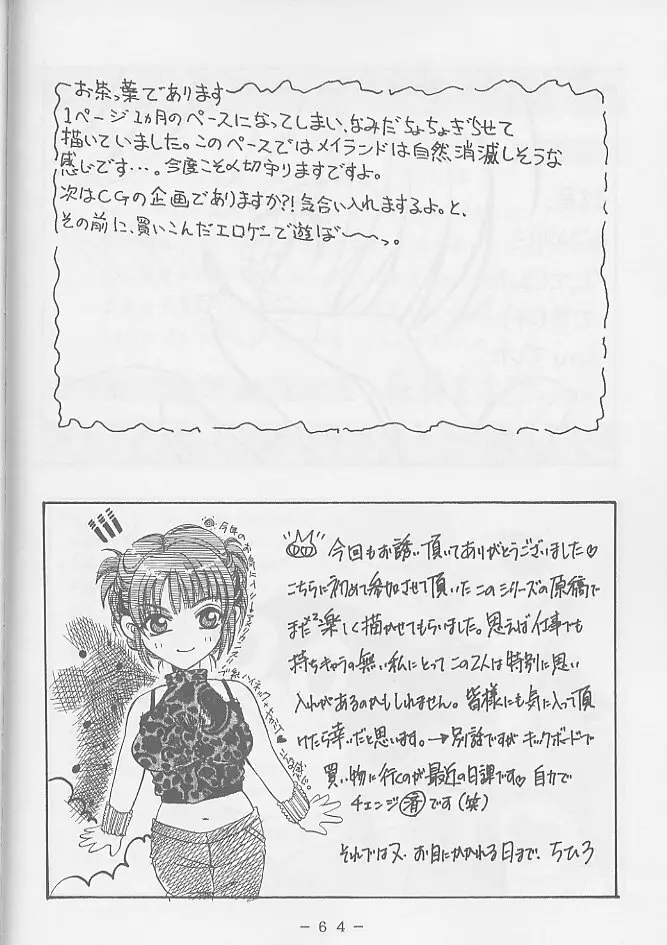 お茶っ葉であります
1ページ1ヵ月のペースになってしまい、なみだちょちょぎらせて
描いていました。このペースではメイランドは自然消滅しそうな
感じです…。今度こそ〆切守りますですよ。
次はCGの企画でありますか?!気合い入れまするよ。と、
その前に、買いこんだエロゲーで遊ぼ〜〜っ。
今回もお誘い頂いてありがとうございました♡
こちらに初めて参加させて頂いたこのシリーズの原稿で
また楽しく描かせてもらいました。思えば仕事でも
持ちキャラの無い私にとってこの2人は特別に思い
入れがあるのかもしれません。皆様にも気に入って頂
けたら幸いだと思います。→別話ですがキックボードで
買い物に行くのが最近の日課です♡ 自力で
チェンジ済です(笑)
それでは又、お目にかかれる日まで、ちひろ
こんな感じ。
- 64 -